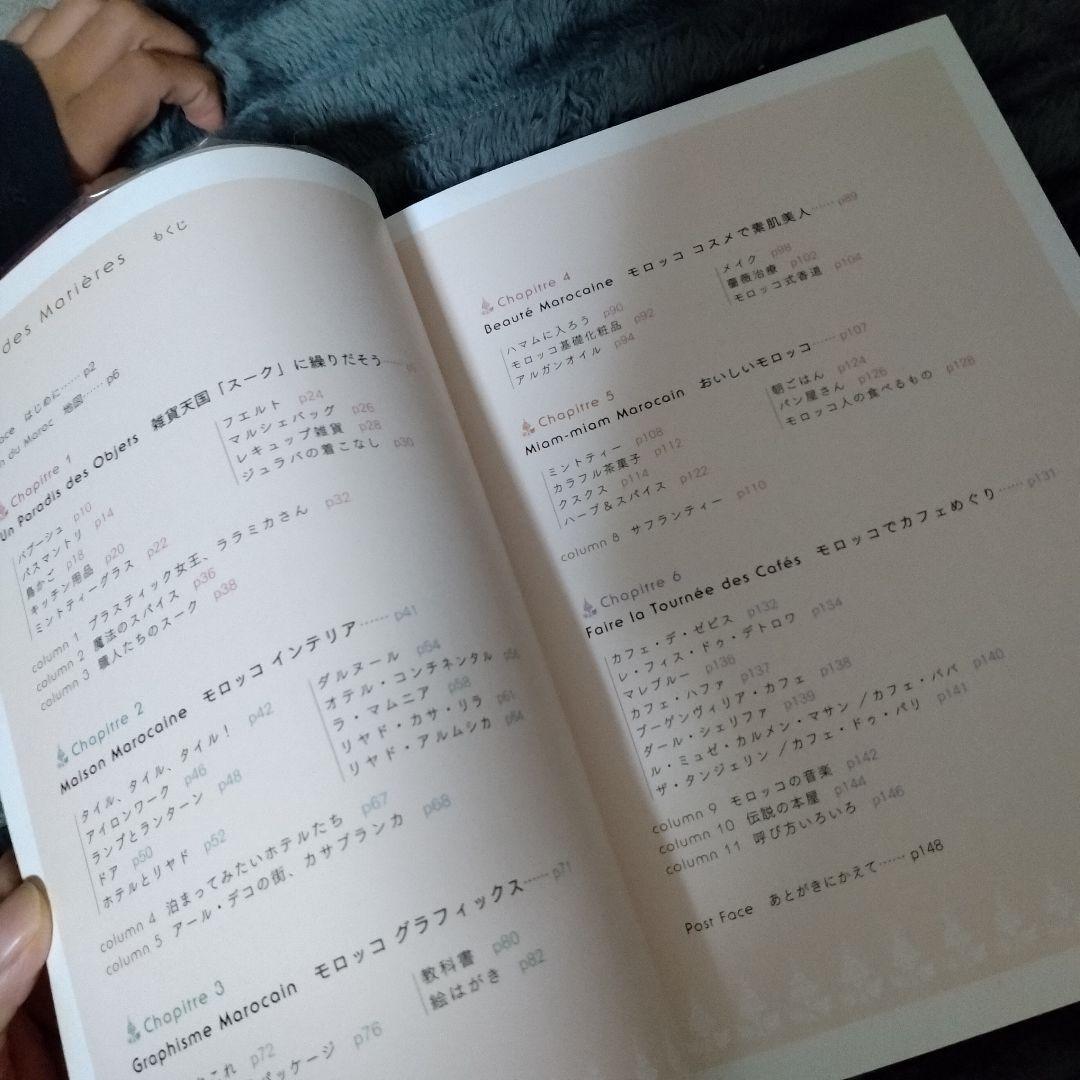 des Marières もくじ
はじめに…… p2
du Maroc 地図…… p6
Chapitre 1
Un Paradis des Objets 雑貨天国「スーク」に繰りだそう……
バブーシュ p10
パスマントリ p14
鳥かご p18
キッチン用品 p20
ミントティーグラス p22
フエルト p24
マルシェバッグ p26
レキュップ雑貨 p28
ジュラバの着こなし p30
column 1 プラスティック女王、ララミカさん p32
column 2 魔法のスパイス p36
column 3 職人たちのスーク p38
Chapitre 2
Maison Marocaine モロッコ インテリア…… p41
タイル、タイル、タイル! p42
アイロンワーク p46
ランプとランターン p48
ドア p50
ホテルとリヤド p52
ダルヌール p54
オテル・コンチネンタル p56
ラ・マムニア p58
リヤド・カサ・リラ p61
リヤド・アルムシカ p64
column 4 泊まってみたいホテルたち p67
column 5 アール・デコの街、カサブランカ p68
Chapitre 3
Graphisme Marocain モロッコ グラフィックス…… p71
これ p72
パッケージ p76
教科書 p80
絵はがき p82
Chapitre 4
Beauté Marocaine モロッコ コスメで素肌美人…… p89
ハマムに入ろう p90
モロッコ基礎化粧品 p92
アルガンオイル p94
メイク p98
薔薇治療 p102
モロッコ式香道 p104
Chapitre 5
Miam-miam Marocain おいしいモロッコ…… p107
ミントティー p108
カラフル茶菓子 p112
クスクス p114
ハーブ&スパイス p122
朝ごはん p124
パン屋さん p126
モロッコ人の食べるもの p128
column 8 サフランティー p110
Chapitre 6
Faire la Tournée des Cafés モロッコでカフェめぐり…… p131
カフェ・デ・ゼピス p132
レ・フィス・ドゥ・デトロワ p134
マレブルー p136
カフェ・ハファ p137
ブーゲンヴィリア・カフェ p138
ダール・シェリファ p139
ル・ミュゼ・カルメン・マサン / カフェ・ババ p140
ザ・タンジェリン / カフェ・ドゥ・パリ p141
column 9 モロッコの音楽 p142
column 10 伝説の本屋 p144
column 11 呼び方いろいろ p146
Post Face あとがきにかえて…… p148